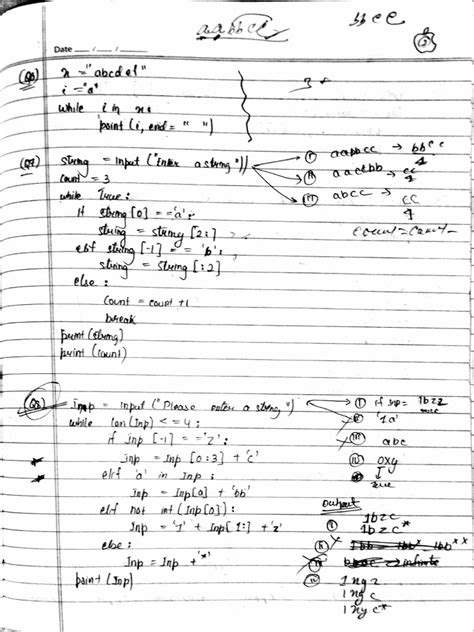 aabbcc
bbcc
②
Date __/__/__
Q6 x = "abcdef"
i = "a"
while i in x:
print (i, end = " ")
Q7 string = input ("Enter a string"))
count = 3
while True:
if string [0] == 'a':
string = string [2:]
elif string [-1] == 'b':
string = string [:2]
else:
count = count +1
break
print (string)
print (count)
I aabbcc → bbcc
4
II aaccbb → cc
4
III abcc → cc
4
Q8 inp = input ("Please enter a string")
while len (Inp) <= 4:
if inp [-1] == 'z':
inp = Inp [0:3] + 'c'
elif 'a' in Inp:
Inp = Inp[0] + 'bb'
elif not int (Inp[0]):
Inp = '1' + Inp [1:] + 'z'
else:
Inp = Inp + '*'
print (Inp)
I if inp = 1bzz
'1a'
III abc
IV 0xy
output
I 1bzc
1bzc*
II
infinite
IV 1xyz
1xyc
1xyc*